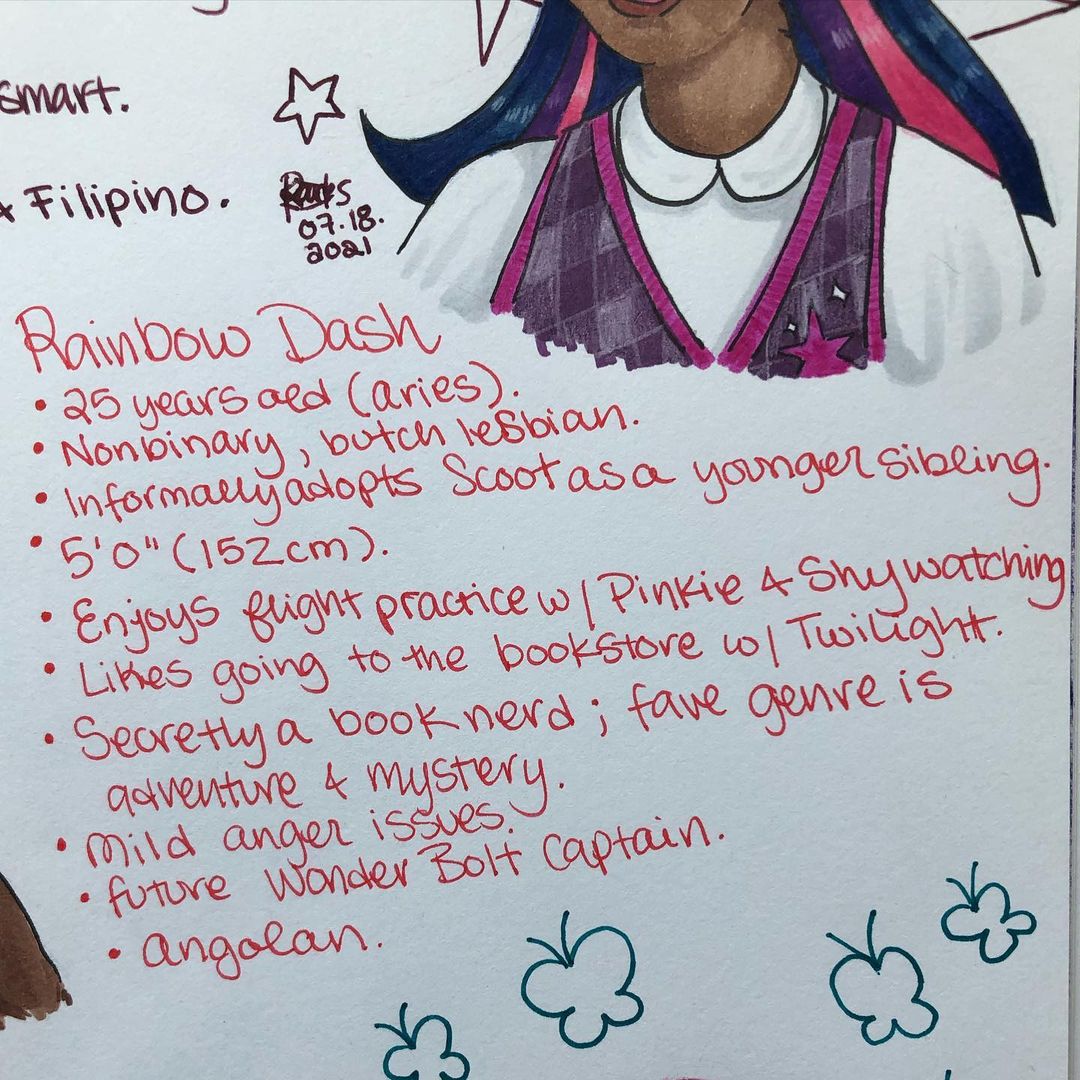 smart.
& Filipino.
07.18.
2021
Rainbow Dash
• 25 years old (aries).
• Nonbinary, butch lesbian.
• Informally adopts Scoot as a younger sibling.
• 5'0" (152cm).
• Enjoys flight practice w/ Pinkie & Shy watching
• Likes going to the bookstore w/ Twilight.
• Secretly a book nerd; fave genre is
adventure & mystery.
• mild anger issues.
• future Wonder Bolt Captain.
• angolan.